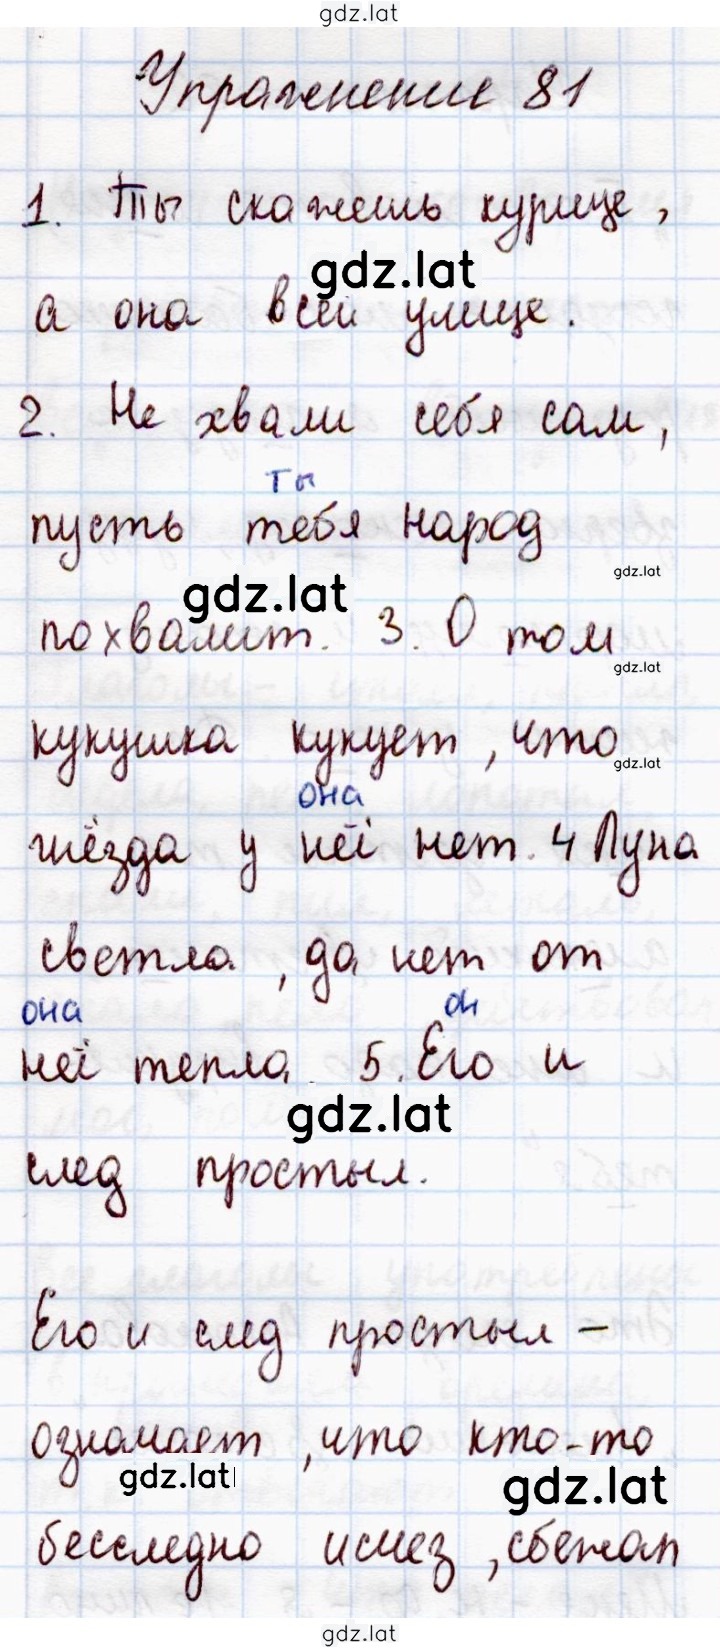 gdz.lat
Упражнение 81
1. Ты скажешь курице,
gdz.lat
а она всей улице.
2. Не хвали себя сам,
ты
пусть тебя народ
gdz.lat
gdz.lat
похвалит. 3. О том
gdz.lat
кукушка кукует, что
gdz.lat
она
гнёзда у неё нет. 4 Луна
светла, да нет от
она он
неё тепла. 5. Его и
gdz.lat
след простыл.
Его и след простыл –
означает, что кто-то
gdz.lat
gdz.lat
бесследно исчез, сбежал
gdz.lat